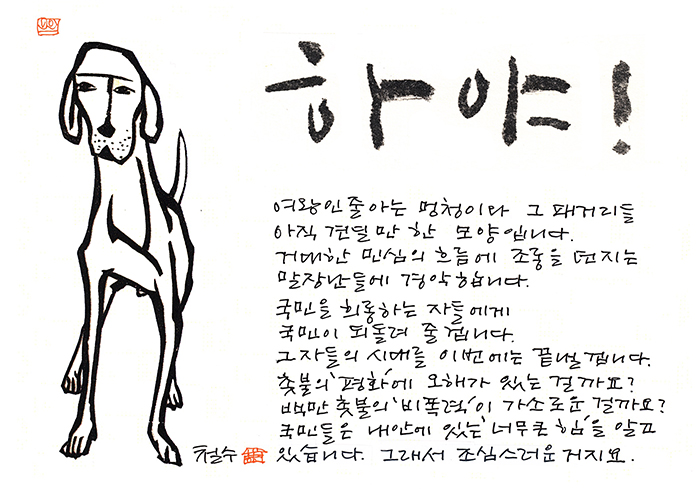 하야!
여왕인줄아는 멍청이와 그 패거리들
아직 견딜만 한 모양입니다.
거대한 민심의 흐름에 조롱을 던지는
말장난들에 경악합니다.
국민을 희롱하는 자들에게
국민이 되돌려 줄겁니다.
그자들의 시대를 이번에는 끝낼겁니다.
촛불의 '평화'에 오해가 있는 걸까요?
백만 촛불의 '비폭력'이 가소로운 걸까요?
국민들은 내안에 있는 '너무큰 힘'을 알고
있습니다. 그래서 조심스러운거지요.
철수